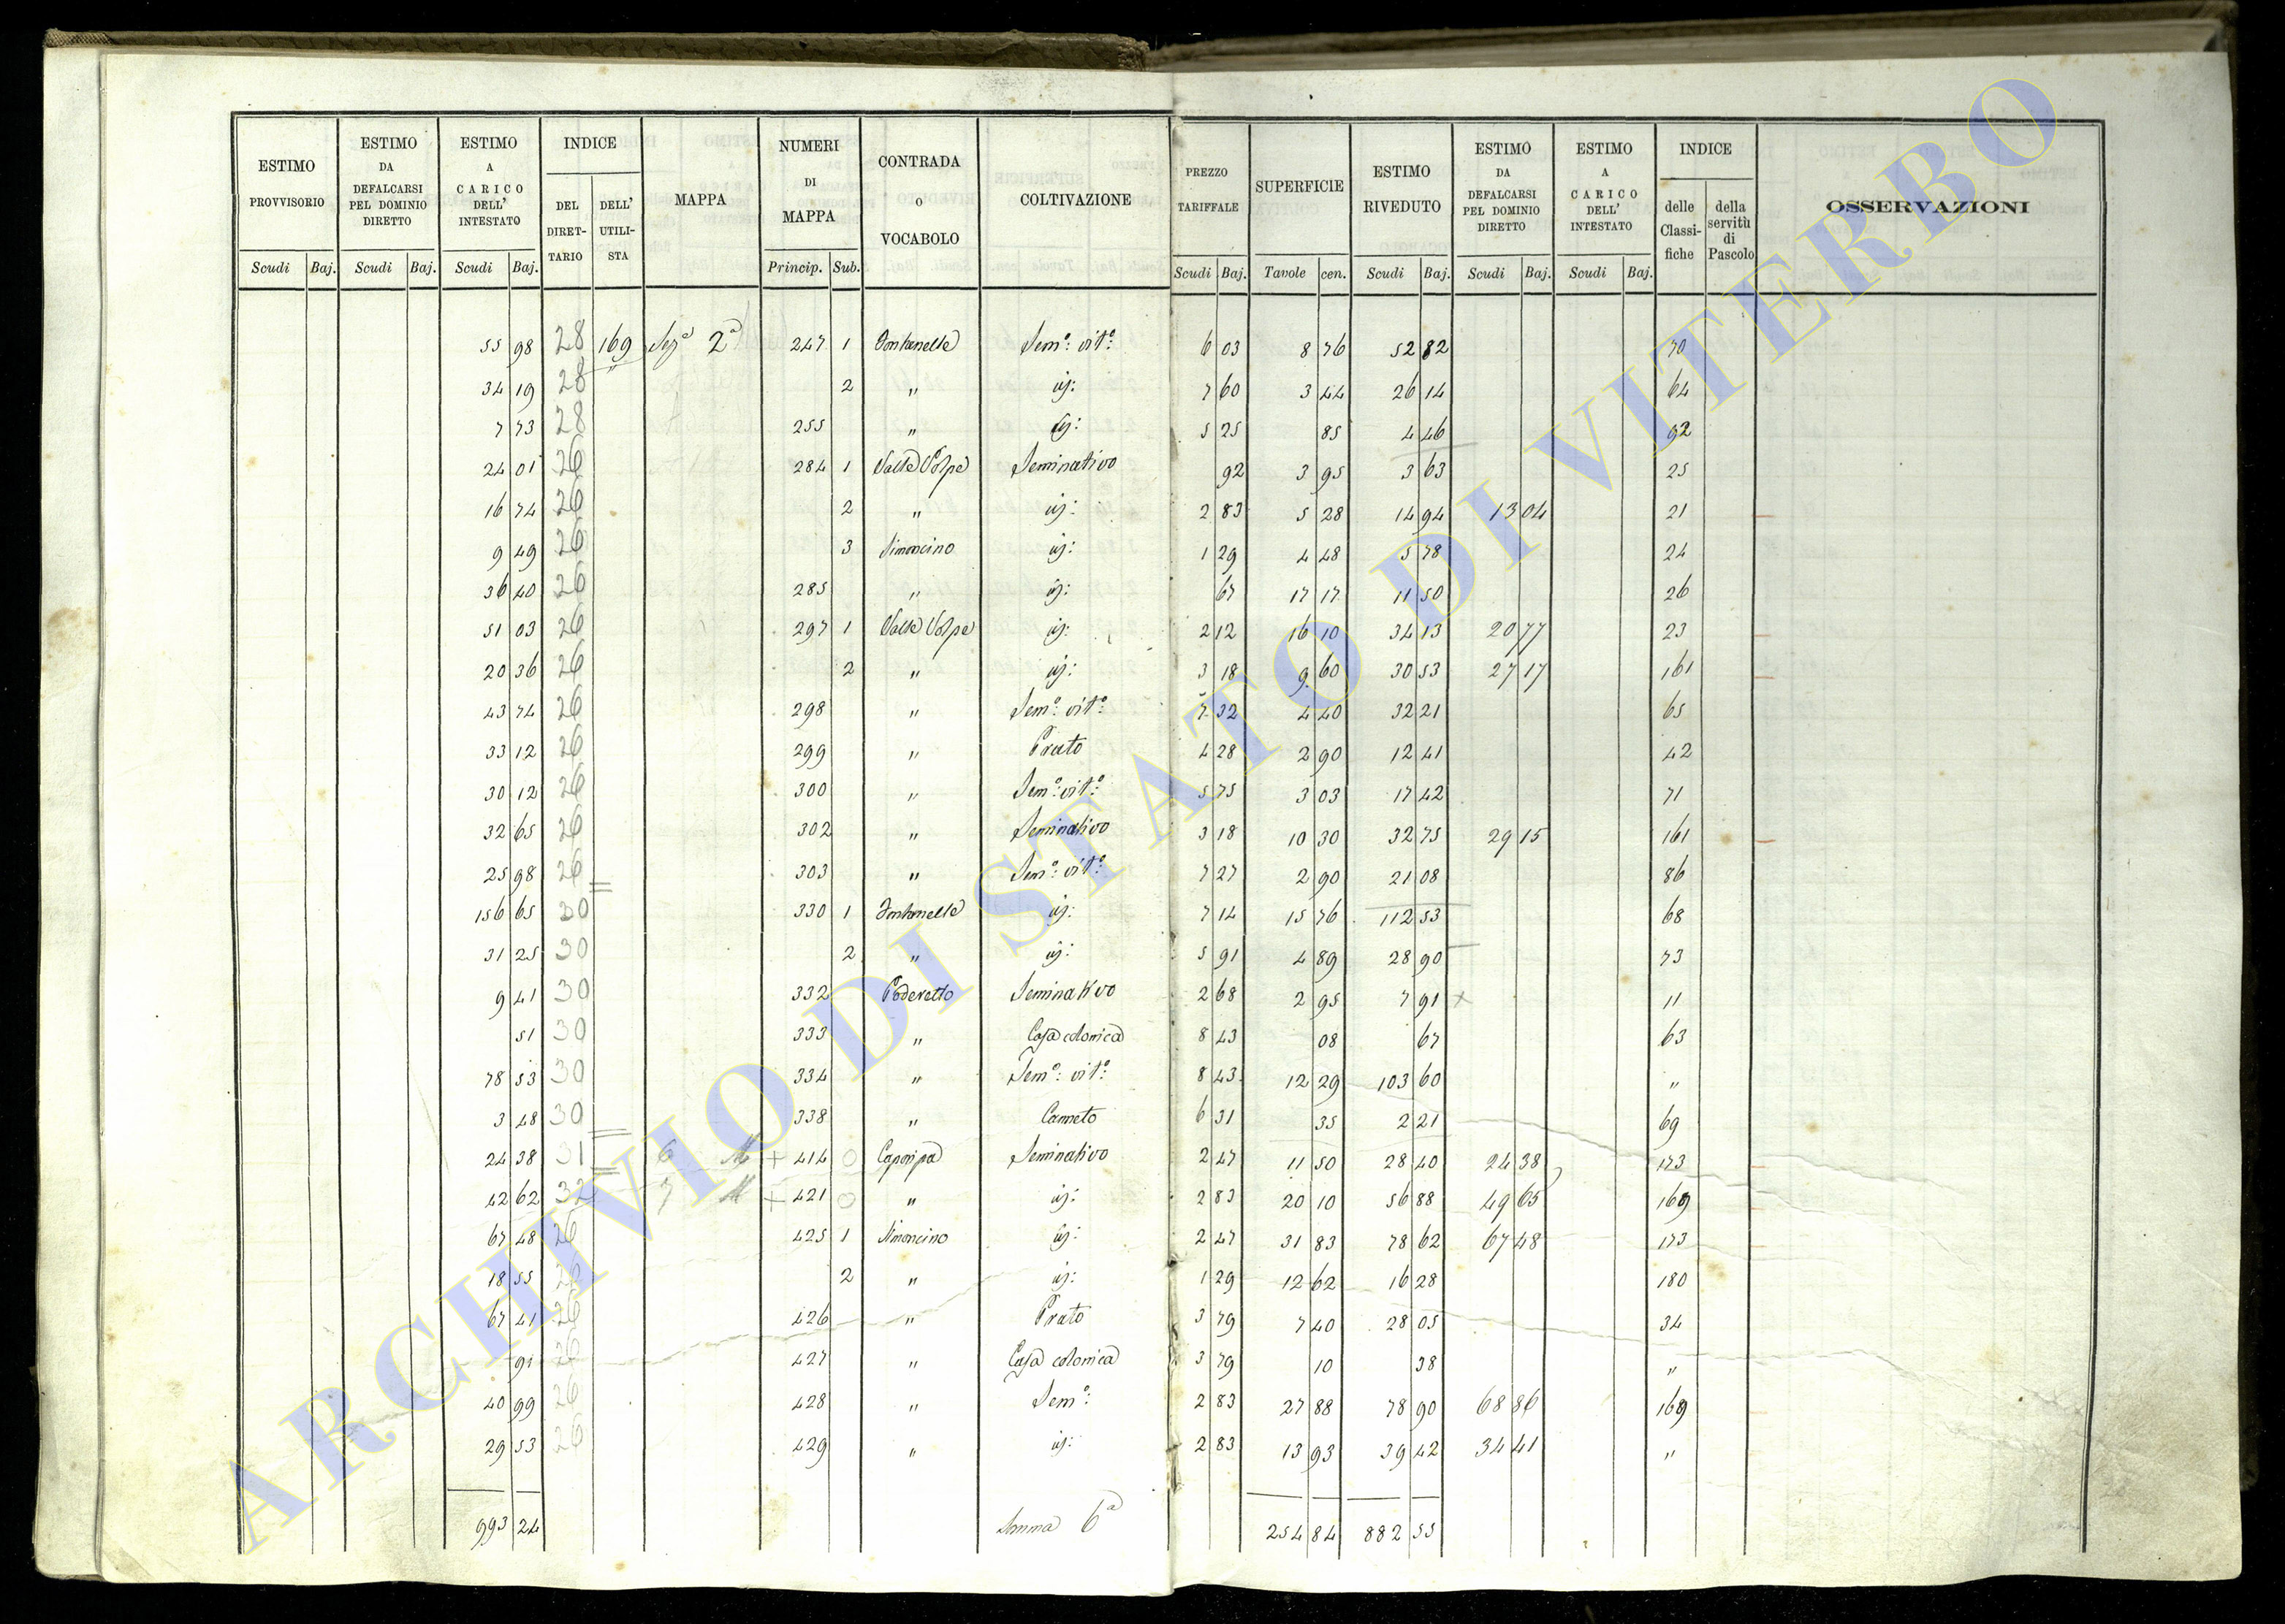 ESTIMO PROVVISORIO Scudi Baj. ESTIMO DA DEFALCARSI PEL DOMINIO DIRETTO Scudi Baj. ESTIMO A CARICO DELL' INTESTATO Scudi Baj. INDICE DEL DIRET-TARIO DELL' UTILI-STA MAPPA NUMERI DI MAPPA Princip. Sub. CONTRADA O VOCABOLO COLTIVAZIONE PREZZO TARIFFALE Scudi Baj. SUPERFICIE Tavole cen. ESTIMO RIVEDUTO Scudi Baj. ESTIMO DA DEFALCARSI PEL DOMINIO DIRETTO Scudi Baj. ESTIMO A CARICO DELL' INTESTATO Scudi Baj. INDICE delle Classi-fiche della servitù di Pascolo OSSERVAZIONI
55 98 28 169 2ª 247 1 Fontanelle Semº: vitº: 6 03 8 76 52 82 70
34 19 28 " 2 " id: 7 60 3 44 26 14 64
7 73 28 255 " id: 5 25 85 4 46 92
24 01 26 284 1 Valle Volpe Seminativo 92 3 95 3 63 25
16 74 26 2 " id: 2 83 5 28 14 94 13 04 21
9 49 26 3 Simoncino id: 1 29 4 48 5 78 24
36 40 26 285 " id: 67 17 17 11 50 26
51 03 26 297 1 Valle Volpe id: 2 12 16 10 34 13 20 77 23
20 36 26 2 " id: 3 18 9 60 30 53 27 17 161
43 74 26 298 " Semº: vitº: 7 32 4 40 32 21 65
33 12 26 299 " Prato 4 28 2 90 12 41 42
30 12 26 300 " Semº: vitº: 5 75 3 03 17 42 71
32 65 26 302 " Seminativo 3 18 10 30 32 75 29 15 161
25 98 26 303 " Semº: vitº: 7 27 2 90 21 08 86
156 65 30 330 1 Fontanelle id: 7 14 15 76 112 53 68
31 25 30 2 " id: 5 91 4 89 28 90 73
9 41 30 332 Poderetto Seminativo 2 68 2 95 7 91 + 11
51 30 333 " Casa colonica 8 43 08 67 63
78 53 30 334 " Semº: vitº: 8 43 12 29 103 60 "
3 48 30 338 " Canneto 6 31 35 2 21 69
24 38 31 6 M + 414 0 Caporipa Seminativo 2 47 11 50 28 40 24 38 173
42 62 32 7 M + 421 0 " id: 2 83 20 10 56 88 49 65 169
67 48 26 425 1 Simoncino id: 2 47 31 83 78 62 67 48 173
18 55 26 2 " id: 1 29 12 62 16 28 180
67 41 26 426 " Prato 3 79 7 40 28 05 34
91 26 427 " Casa colonica 3 79 10 38 "
40 99 26 428 " Semº: 2 83 27 88 78 90 68 86 169
29 53 26 429 " id: 2 83 13 93 39 42 34 41 "
993 24 Somma 6ª 254 84 882 55
ARCHIVIO DI STATO DI VITERBO